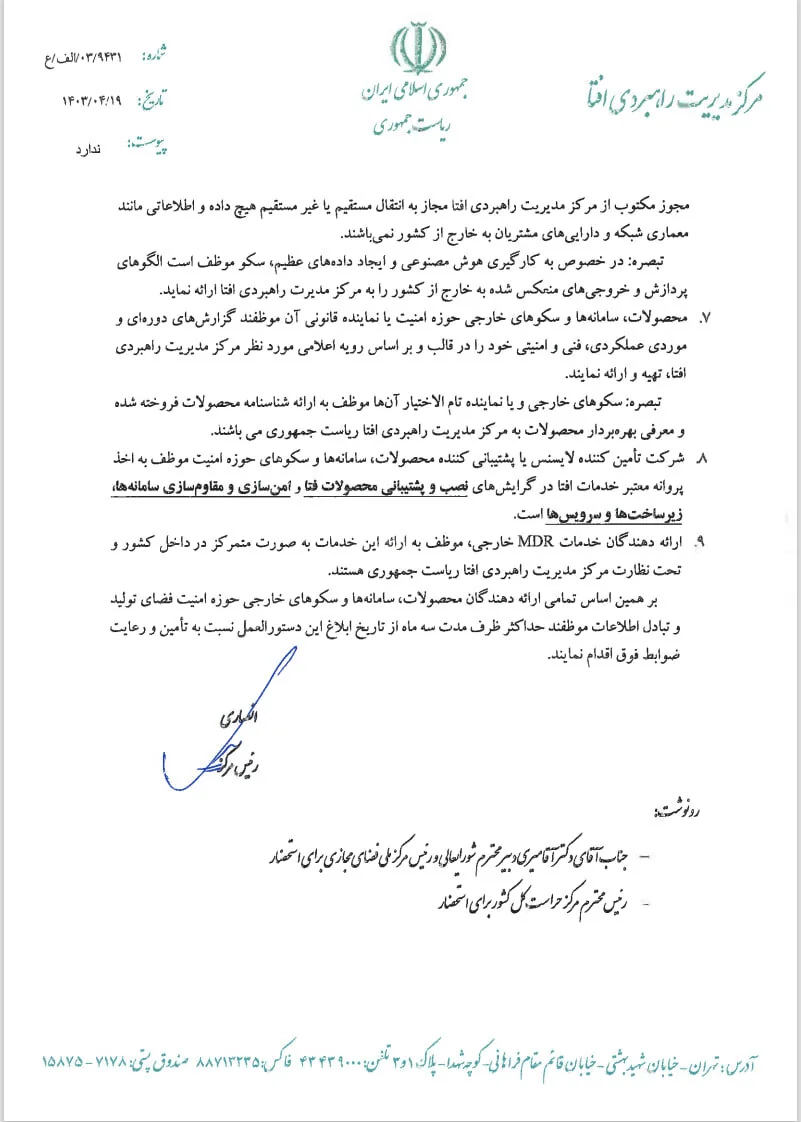 مرکز مدیریت راهبردی افتا
جمهوری اسلامی ایران
ریاست جمهوری
شماره: ۰۳/۹۴۳۱/الف/ع
تاریخ: ۱۴۰۳/۰۴/۱۹
پیوست: ندارد
مجوز مکتوب از مرکز مدیریت راهبردی افتا مجاز به انتقال مستقیم یا غیر مستقیم هیچ داده و اطلاعاتی مانند
معماری شبکه و دارایی‌های مشتریان به خارج از کشور نمی‌باشند.
تبصره: در خصوص به کارگیری هوش مصنوعی و ایجاد داده‌های عظیم، سکو موظف است الگوهای
پردازش و خروجی‌های منعکس شده به خارج از کشور را به مرکز مدیرت راهبردی افتا ارائه نماید.
۷. محصولات، سامانه‌ها و سکوهای خارجی حوزه امنیت یا نماینده قانونی آن موظفند گزارش‌های دوره‌ای و
موردی عملکردی، فنی و امنیتی خود را در قالب و بر اساس رویه اعلامی مورد نظر مرکز مدیریت راهبردی
افتا، تهیه و ارائه نمایند.
تبصره: سکوهای خارجی و یا نماینده تام الاختیار آن‌ها موظف به ارائه شناسنامه محصولات فروخته شده
و معرفی بهره‌بردار محصولات به مرکز مدیریت راهبردی افتا ریاست جمهوری می باشند.
۸. شرکت تأمین کننده لایسنس یا پشتیبانی کننده محصولات، سامانه‌ها و سکوهای حوزه امنیت موظف به اخذ
پروانه معتبر خدمات افتا در گرایش‌های نصب و پشتیبانی محصولات فتا و امن‌سازی و مقاوم‌سازی سامانه‌ها،
زیرساخت‌ها و سرویس‌ها است.
۹. ارائه دهندگان خدمات MDR خارجی، موظف به ارائه این خدمات به صورت متمرکز در داخل کشور و
تحت نظارت مرکز مدیریت راهبردی افتا ریاست جمهوری هستند.
بر همین اساس تمامی ارائه دهندگان محصولات، سامانه‌ها و سکوهای خارجی حوزه امنیت فضای تولید
و تبادل اطلاعات موظفند حداکثر ظرف مدت سه ماه از تاریخ ابلاغ این دستورالعمل نسبت به تأمین و رعایت
ضوابط فوق اقدام نمایند.
انصاری
رئیس مرکز
رونوشت:
– جناب آقای دکتر آقامیری دبیر محترم شورایعالی و رئیس مرکز ملی فضای مجازی برای استحضار
- رئیس محترم مرکز حراست کل کشور برای استحضار
آدرس: تهران - خیابان شهید بهشتی - خیابان قائم مقام فراهانی - کوچه شهدا - پلاک ۱ و ۳ تلفن: ۴۳۴۳۹۰۰۰ فاکس: ۸۸۷۱۳۲۳۵ صندوق پستی: ۷۱۷۸ - ۱۵۸۷۵